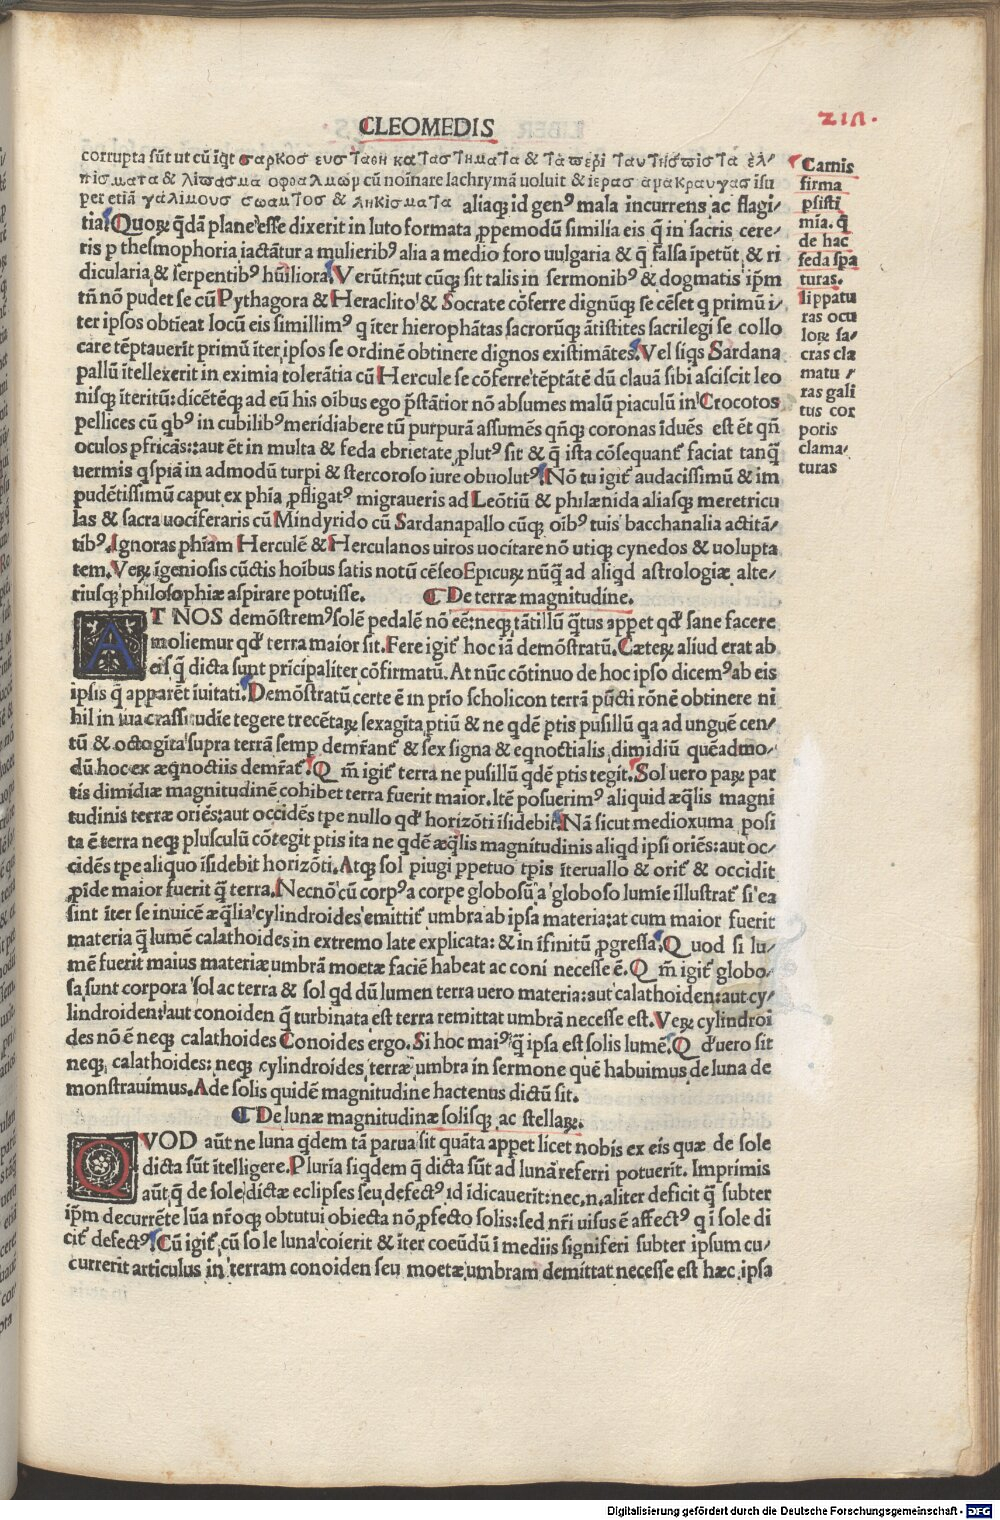 CLEOMEDIS
corrupta sūt ut cū iq̄t σαρκοσ ευσταθη κατασтηματα & τα περι ταυτησ πιστα ἐλ⸗
πισματα & λιπασμα οφθαλμωμ cū noīnare lachrymā uoluit & ιερασ αμακραυγασ iſu
per etiā γαλιμουσ σωαμτοσ & ληκισματα aliaq; id genꝰ mala incurrens ac flagi⸗
tia. Quoꝝ q̄dā plane eſſe dixerit in luto formata ꝓpemodū ſimilia eis q̄ in ſacris cere⸗
ris p theſmophoria iactātur a mulieribꝰ alia a medio foro uulgaria & q̄ falſa īpetūt & ri
dicularia & ſerpentibꝰ hūiliora. Verūtn̄: ut cūq; ſit talis in ſermonibꝰ & dogmatis ip̄m
tn̄ nō pudet ſe cū Pythagora & Heraclito & Socrate cōferre dignūq; ſe cēſet q primū i⸗
ter ipſos obtīeat locū eis ſimillimꝰ q īter hierophātas ſacrorūq; ātiſtites ſacrilegi ſe collo
care tēptauerīt primū īter ipſos ſe ordinē obtinere dignos exiſtimātes. Vel ſiq̄s Sardana
pallū ītellexerit in eximia tolerātia cū Hercule ſe cōferre tēptātē dū clauā ſibi aſciſcit leo
niſq; īteritū: dicētēq; ad eū his oībus ego p̄ſtātior nō abſumes malū piaculū in Crocotos
pellices cū qbꝰ in cubilibꝰ merīdiabere tū purpurā aſſumēs qn̄q; coronas īduēs eſt ēt qn̄
oculos pfricās: aut ēt in multa & feda ebrietate plutꝰ ſit & q̄ iſta cōſequant᷑ faciat tanq̄
uermis qſpiā in admodū turpi & ſtercoroſo iure obuolutꝰ. Nō tu igit᷑ audaciſſimū & im
pudētiſſimū caput ex phīa ꝓfligatꝰ migraueris ad Leōtiū & philænida aliaſq; meretricu
las & ſacra uociferaris cū Mindyrido cū Sardanapallo cūq; oībꝰ tuis bacchanalia actitā⸗
tibꝰ. Ignoras phīam Herculē & Herculanos uiros uocitare nō utiq; cynedos & uolupta
tem. Veꝝ īgenioſis cūctis hoībus ſatis notū cēſeo Epicuꝝ nūq̄ ad aliqd aſtrologiæ alte⸗
riuſq; philoſophiæ aſpirare potuiſſe.
De terræ magnitudine.
AT NOS demōſtremꝰ ſolē pedalē nō eē: neq; tātillū q̄tus appet qd᷑ ſane facere
moliemur qd᷑ terra maior ſit. Fere igit᷑ hoc iā demōſtratū. Cæteꝝ aliud erat ab
eis q̄ dicta ſunt prīcipaliter cōfirmatū. At nūc cōtinuo de hoc ipſo dicemꝰ ab eis
ipſis q̄ apparēt īuitati. Demōſtratū certe ē in prīo ſcholicon terrā pūcti rōnē obtinere ni
hil in ſua craſſitudīe tegere trecētaꝝ ſexagīta ptiū & ne qdē ptis puſillū qa ad unguē cen⸗
tū & octogīta ſupra terrā ſemp demr̄ant᷑ & ſex ſigna & eqnoctialis dimidiū quēadmo⸗
dū hoc ex æqnoctiis demr̄at᷑. Qm̄ igit᷑ terra ne puſillū qdē ptis tegit. Sol uero paꝝ par
tis dimidiæ magnitudinē cohibet terra fuerit maior. Itē poſuerimꝰ aliquid æq̄lis magni
tudinis terræ oriēs: aut occidēs tpe nullo qd᷑ horizōti īſidebit. Nā ſicut medioxuma poſi
ta ē terra neq; pluſculū cōtegit ptis ita ne qdē æq̄lis magnitudinis aliqd ipſi oriēs: aut oc⸗
cidēs tpe aliquo īſidebit horizōti. Atq; ſol piugi ppetuo tpis īteruallo & orit᷑ & occidit
ꝓīde maior fuerit q̄ terra. Necnō cū corpꝰ a corpe globoſū a globoſo lumīe illuſtrat᷑ ſi ea
ſint īter ſe inuicē æq̄lia cylindroides emittit᷑ umbra ab ipſa materia: at cum maior fuerit
materia q̄ lumē calathoides in extremo late explicata: & in īfinitū ꝓgreſſa. Quod ſi lu⸗
mē fuerit maius materiæ umbrā moetæ faciē habeat ac coni neceſſe ē. Qm̄ igit᷑ globo⸗
ſa ſunt corpora ſol ac terra & ſol qd dū lumen terra uero materia: aut calathoiden: aut cy⸗
lindroiden: aut conoiden q̄ turbinata eſt terra remittat umbrā neceſſe eſt. Veꝝ cylindroi
des nō ē neq; calathoides Conoides ergo. Si hoc maiꝰ q̄ ipſa eſt ſolis lumē. Qd᷑ uero ſit
neq; calathoides: neq; cylindroides terræ umbra in ſermone quē habuimus de luna de
monſtrauimus. Ac de ſolis quidē magnitudine hactenus dictū ſit.
De lunæ magnitudinæ ſoliſq; ac ſtellaꝝ.
QVOD aūt ne luna qdem tā parua ſit quāta appet licet nobis ex eis quæ de ſole
dicta ſūt ītelligere. Pluria ſiqdem q̄ dicta ſūt ad lunā referri potuerīt. Imprimis
aūt q̄ de ſole dictæ eclipſes ſeu defectꝰ id īdicauerīt: nec .n. aliter deficit q̄ ſubter
ip̄m decurrēte lūa nr̄oq; obtutui obiecta nō ꝓfecto ſolis: ſed nr̄i uiſus ē affectꝰ q ī ſole di
cit᷑ defectꝰ. Cū igit᷑ cū ſole luna coierit & īter coeūdū ī mediis ſigniferi ſubter ipſum cu⸗
currerit articulus in terram conoiden ſeu moetæ umbram demittat neceſſe eſt hæc ipſa
Carnis
firma
pſiſtī
mīa. q̄
de hac
feda ſpa
turas.
lippatu
ras ocu
loꝝ ſa⸗
cras cla
matu⸗
ras gali
tus cor
poris
clama⸗
turas
Digitalisierung gefördert durch die Deutsche Forschungsgemeinschaft - DFG